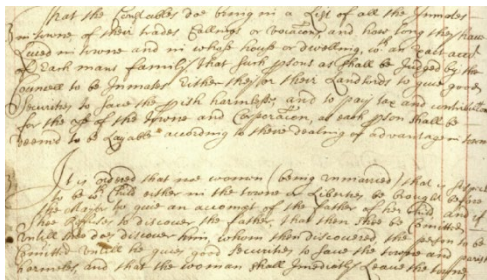 That the Constables doe bring in a List of all the Inmates
in towne of their trades Callings or vocacons, and how long they have
Lived in towne and in whose house or dwelling, wth an Exact acct
of Each mans family, that such psons as shall be Judged by the
Councell to be Inmates Either they or their Landlords to give good
Securities to save the pish harmless, and to pay tax and contribution
for the use of the Towne and Corporacon, as each pson shall be
deemed to be Layable according to there dealing of advantage in town
It is ordered that noe women (being unmarried) that is
to be wth Child either in the towne or Liberties be brought before
the to give an accompt of the father of the Child and if
she Refuses to discover the father, that then shee be Comitted
untill shee doe discover him, whom then discovered the person to be
Comitted untill he give good Securities to save the towne and parish
harmeles, and that the woman shall Imediatly Leave the towne